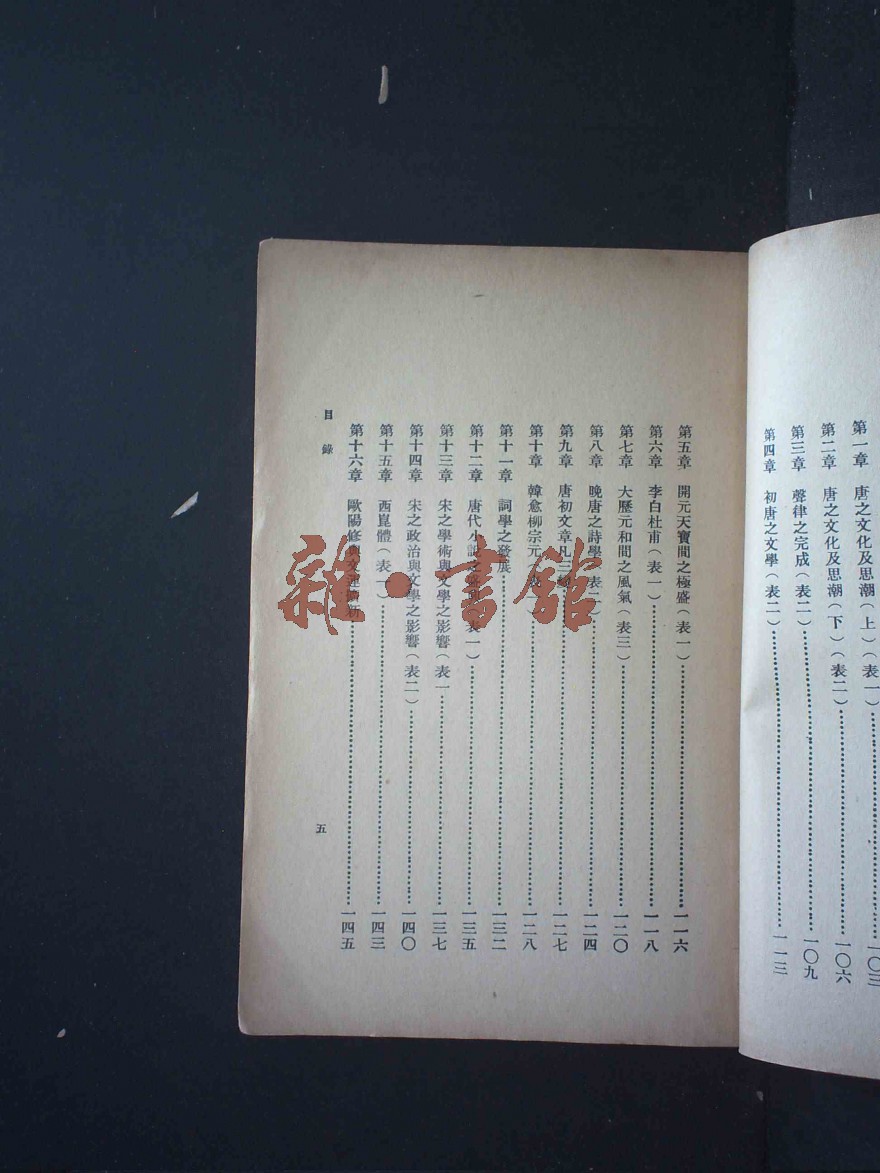 第一章 唐之文化及思潮（上）（表一）……一〇三
第二章 唐之文化及思潮（下）（表二）……一〇六
第三章 聲律之完成（表二）……一〇九
第四章 初唐之文學（表二）……一一三
第五章 開元天寶間之極盛（表一）……一一六
第六章 李白杜甫（表一）……一一八
第七章 大歷元和間之風氣（表三）……一二〇
第八章 晚唐之詩學（表二）……一二四
第九章 唐初文章凡三變……一二七
第十章 韓愈柳宗元（表）……一二八
第十一章 詞學之發展……一三二
第十二章 唐代小說之盛（表一）……一三五
第十三章 宋之學術與文學之影響（表一……一三七
第十四章 宋之政治與文學之影響（表二）……一四〇
第十五章 西崑體（表一）……一四三
第十六章 歐陽修與文運……一四五
目錄
五
雜·書館